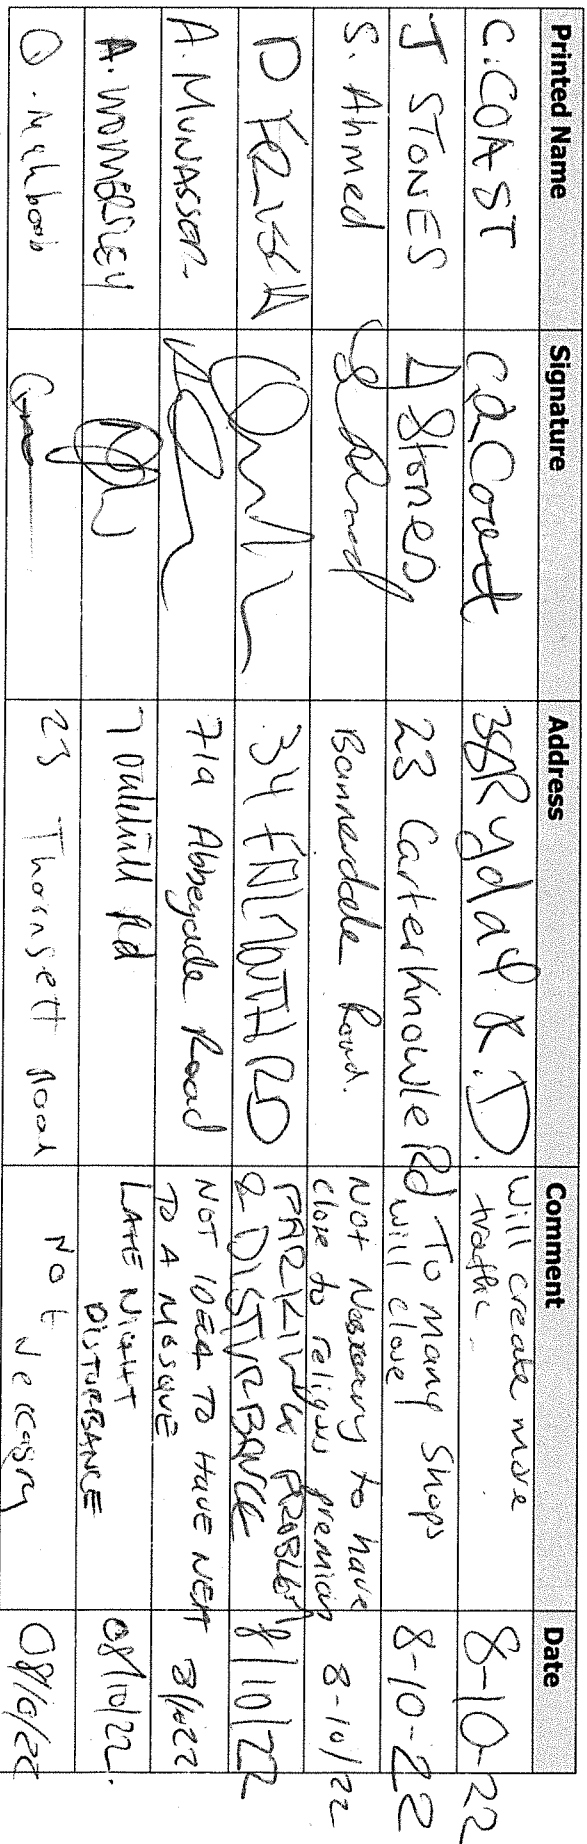 Printed Name Signature Address Comment Date
C. COAST 38 Rydal R.D. Will create more
traffic. 8-10-22
J STONES J Stones 23 Carterknowle Rd To many Shops
will close 8-10-22
S. Ahmed S Ahmed Bannerdale Road. Not Nessary to have
close to religius premicis 8-10/22
D 34 RD PARKING PROBLEM
& DISTURBANCE 8/10/22
A. MUNASSER 71a Abbeydale Road NOT IDEA TO HAVE NEXT
TO A MOSQUE 8/10/22
A. WOMERSLEY 7 Rd LATE NIGHT
DISTURBANCE 08/10/22.
23 Thornsett Road Not Neccasry 08/10/22